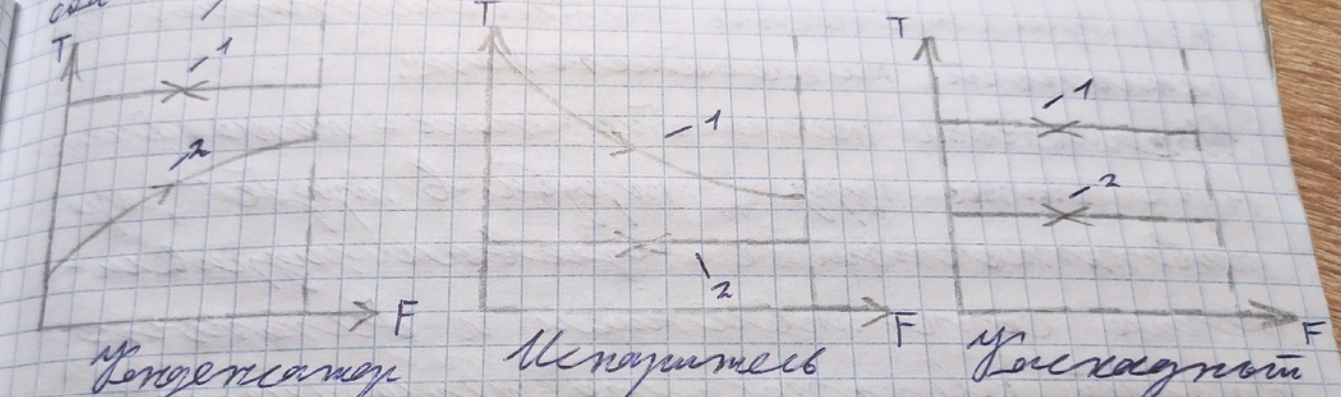 T
1
2
F
Конденсатор
T
1
2
F
Испаритель
T
1
2
F
Каскадный